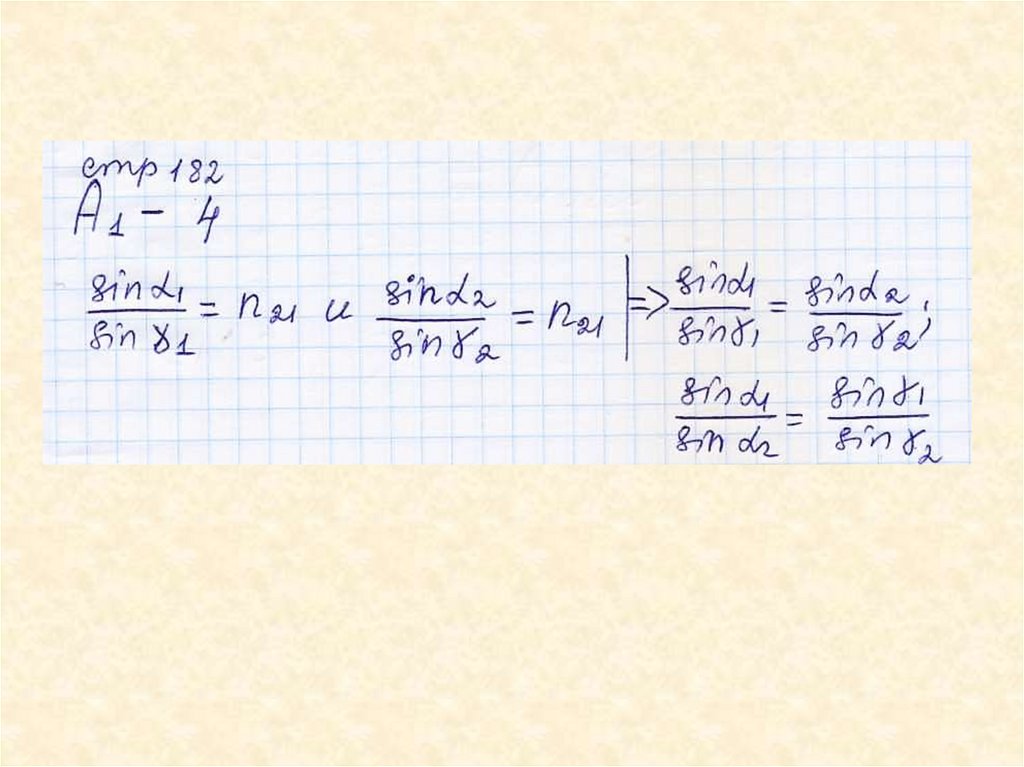 стр 182
A₁ - 4
sinα₁/sinγ₁ = n₂₁ и sinα₂/sinγ₂ = n₂₁ |=> sinα₁/sinγ₁ = sinα₂/sinγ₂;
sinα₁/sinα₂ = sinγ₁/sinγ₂